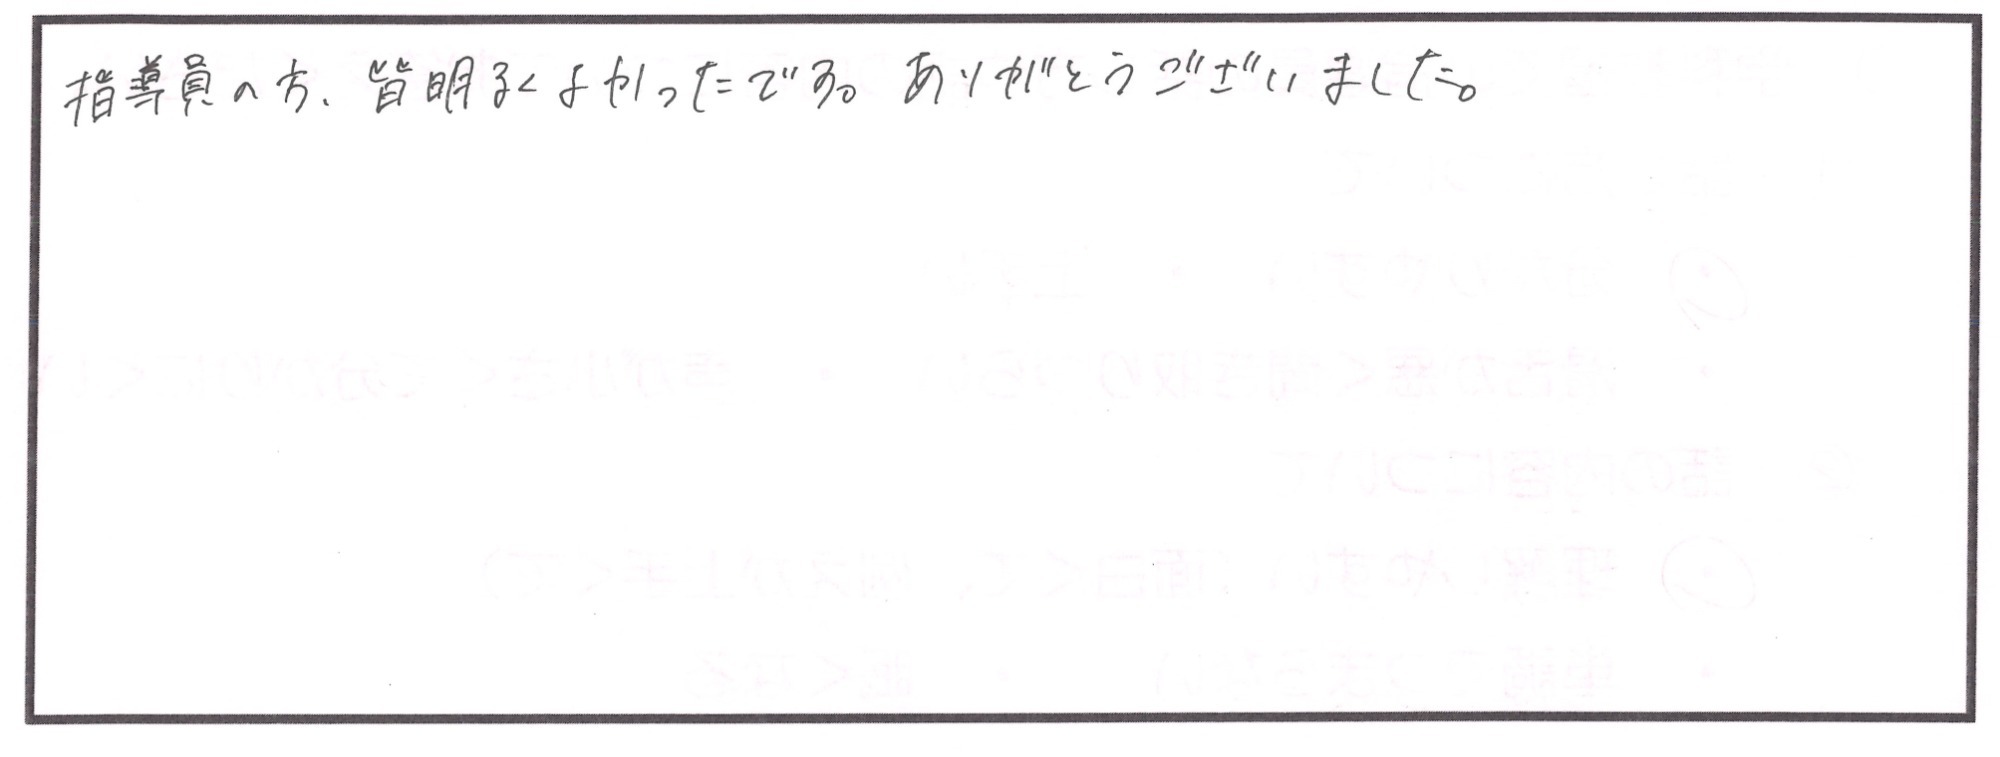 指導員の方、皆明るくよかったです。ありがとうございました。